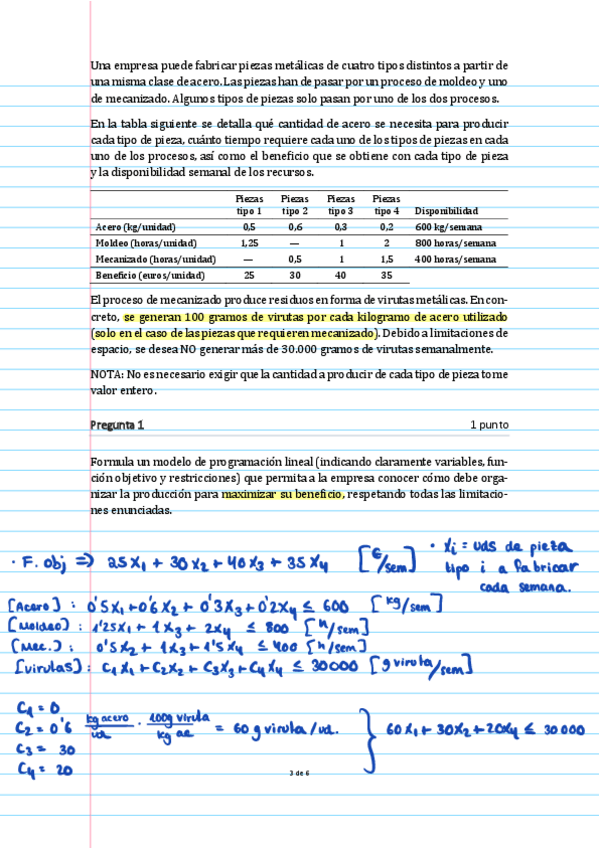 Una empresa puede fabricar piezas metálicas de cuatro tipos distintos a partir de
una misma clase de acero. Las piezas han de pasar por un proceso de moldeo y uno
de mecanizado. Algunos tipos de piezas solo pasan por uno de los dos procesos.
En la tabla siguiente se detalla qué cantidad de acero se necesita para producir
cada tipo de pieza, cuánto tiempo requiere cada uno de los tipos de piezas en cada
uno de los procesos, así como el beneficio que se obtiene con cada tipo de pieza
y la disponibilidad semanal de los recursos.
Piezas tipo 1 Piezas tipo 2 Piezas tipo 3 Piezas tipo 4 Disponibilidad
Acero (kg/unidad) 0,5 0,6 0,3 0,2 600 kg/semana
Moldeo (horas/unidad) 1,25 — 1 2 800 horas/semana
Mecanizado (horas/unidad) — 0,5 1 1,5 400 horas/semana
Beneficio (euros/unidad) 25 30 40 35
El proceso de mecanizado produce residuos en forma de virutas metálicas. En con-
creto, se generan 100 gramos de virutas por cada kilogramo de acero utilizado
(solo en el caso de las piezas que requieren mecanizado). Debido a limitaciones de
espacio, se desea NO generar más de 30.000 gramos de virutas semanalmente.
NOTA: No es necesario exigir que la cantidad a producir de cada tipo de pieza tome
valor entero.
Pregunta 1 1 punto
Formula un modelo de programación lineal (indicando claramente variables, fun-
ción objetivo y restricciones) que permita a la empresa conocer cómo debe orga-
nizar la producción para maximizar su beneficio, respetando todas las limitacio-
nes enunciadas.
· F. obj => 25x1 + 30x2 + 40x3 + 35x4 [€/sem]
· xi = uds de pieza
tipo i a fabricar
cada semana.
[Acero] : 0'5x1+0'6x2 + 0'3x3+0'2x4 ≤ 600 [kg/sem]
[Moldeo] : 1'25x1 + 1x3 + 2x4 ≤ 800 [h/sem]
[Mec.] : 0'5x2 + 1x3 + 1'5x4 ≤ 400 [h/sem]
[virutas] : C1x1 + C2x2 + C3x3 + C4x4 ≤ 30000 [g viruta/sem]
C1 = 0
C2 = 0'6 kg acero/ud · 100g viruta/kg ac = 60 g viruta/ud.
C3 = 30
C4 = 20
} 60x1 + 30x2 + 20x4 ≤ 30000
3 de 6